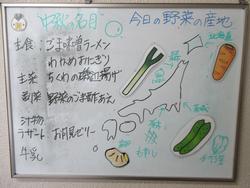 中秋の名月
主食 ごま味噌ラーメン
わかめおにぎり
主菜 ちくわの磯辺揚げ
副菜 野菜のごま酢あえ
汁物
デザート お月見ゼリー
牛乳
今日の野菜の産地
北海道
もやし